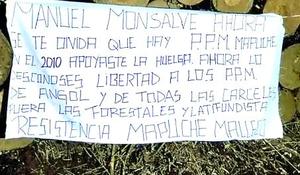 MANUEL MONSALVE AHORA
SE TE OLVIDA QUE HAY P.P.M MAPUCHE
EN EL 2010 APOYASTE LA HUELGA. AHORA LO
DESCONOSES LIBERTAD A LOS P.P.M.
DE ANGOL Y DE TODAS LAS CARCELES
FUERA LAS FORESTALES Y LATIFUNDISTA
RESISTENCIA MAPUCHE MALLECO